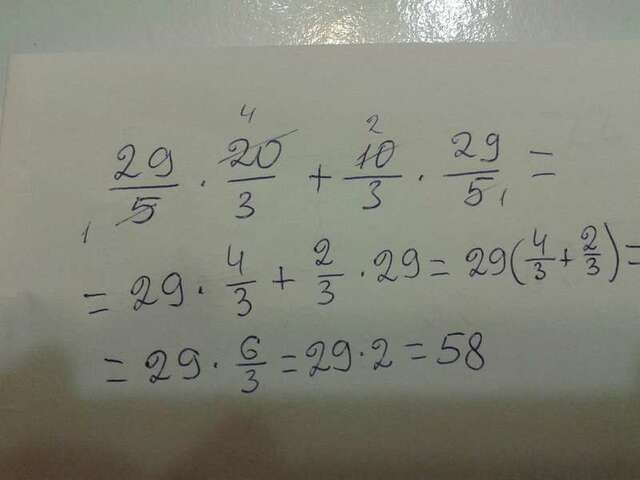 29/5 · 20/3 + 10/3 · 29/5 =
= 29 · 4/3 + 2/3 · 29 = 29(4/3 + 2/3) =
= 29 · 6/3 = 29 · 2 = 58